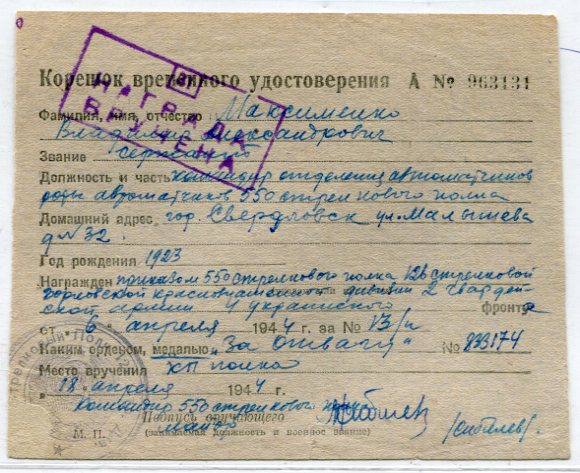 Корешок временного удостоверения А № 963131
НАГРАДА
ВРУЧЕНА
Фамилия, имя, отчество Максименко
Владимир Александрович
Звание сержант
Должность и часть командир отделения автоматчиков
роты автоматчиков 550 стрелкового полка
Домашний адрес гор. Свердловск ул. Малышева
д № 32.
Год рождения 1923
Награжден приказом 550 стрелкового полка 126 стрелковой
горловской краснознаменной дивизии 2 гвардей-
ской армии 4 украинского фронта
от „6" апреля 1944 г. за № 13/н
Каким орденом, медалью „За Отвагу" № 833174
Место вручения КП полка
„18" апреля 1944 г.
Командир 550 стрелкового полка
Подпись вручающего
майор
М. П. (занимаемая должность и военное звание)